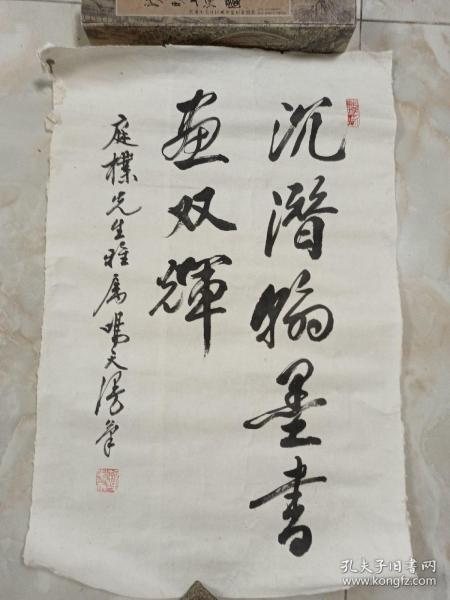 沉潜翰墨書
画双輝
庭樸先生雅属鳴天漫笔
孔夫子旧书网
www.kongfz.com